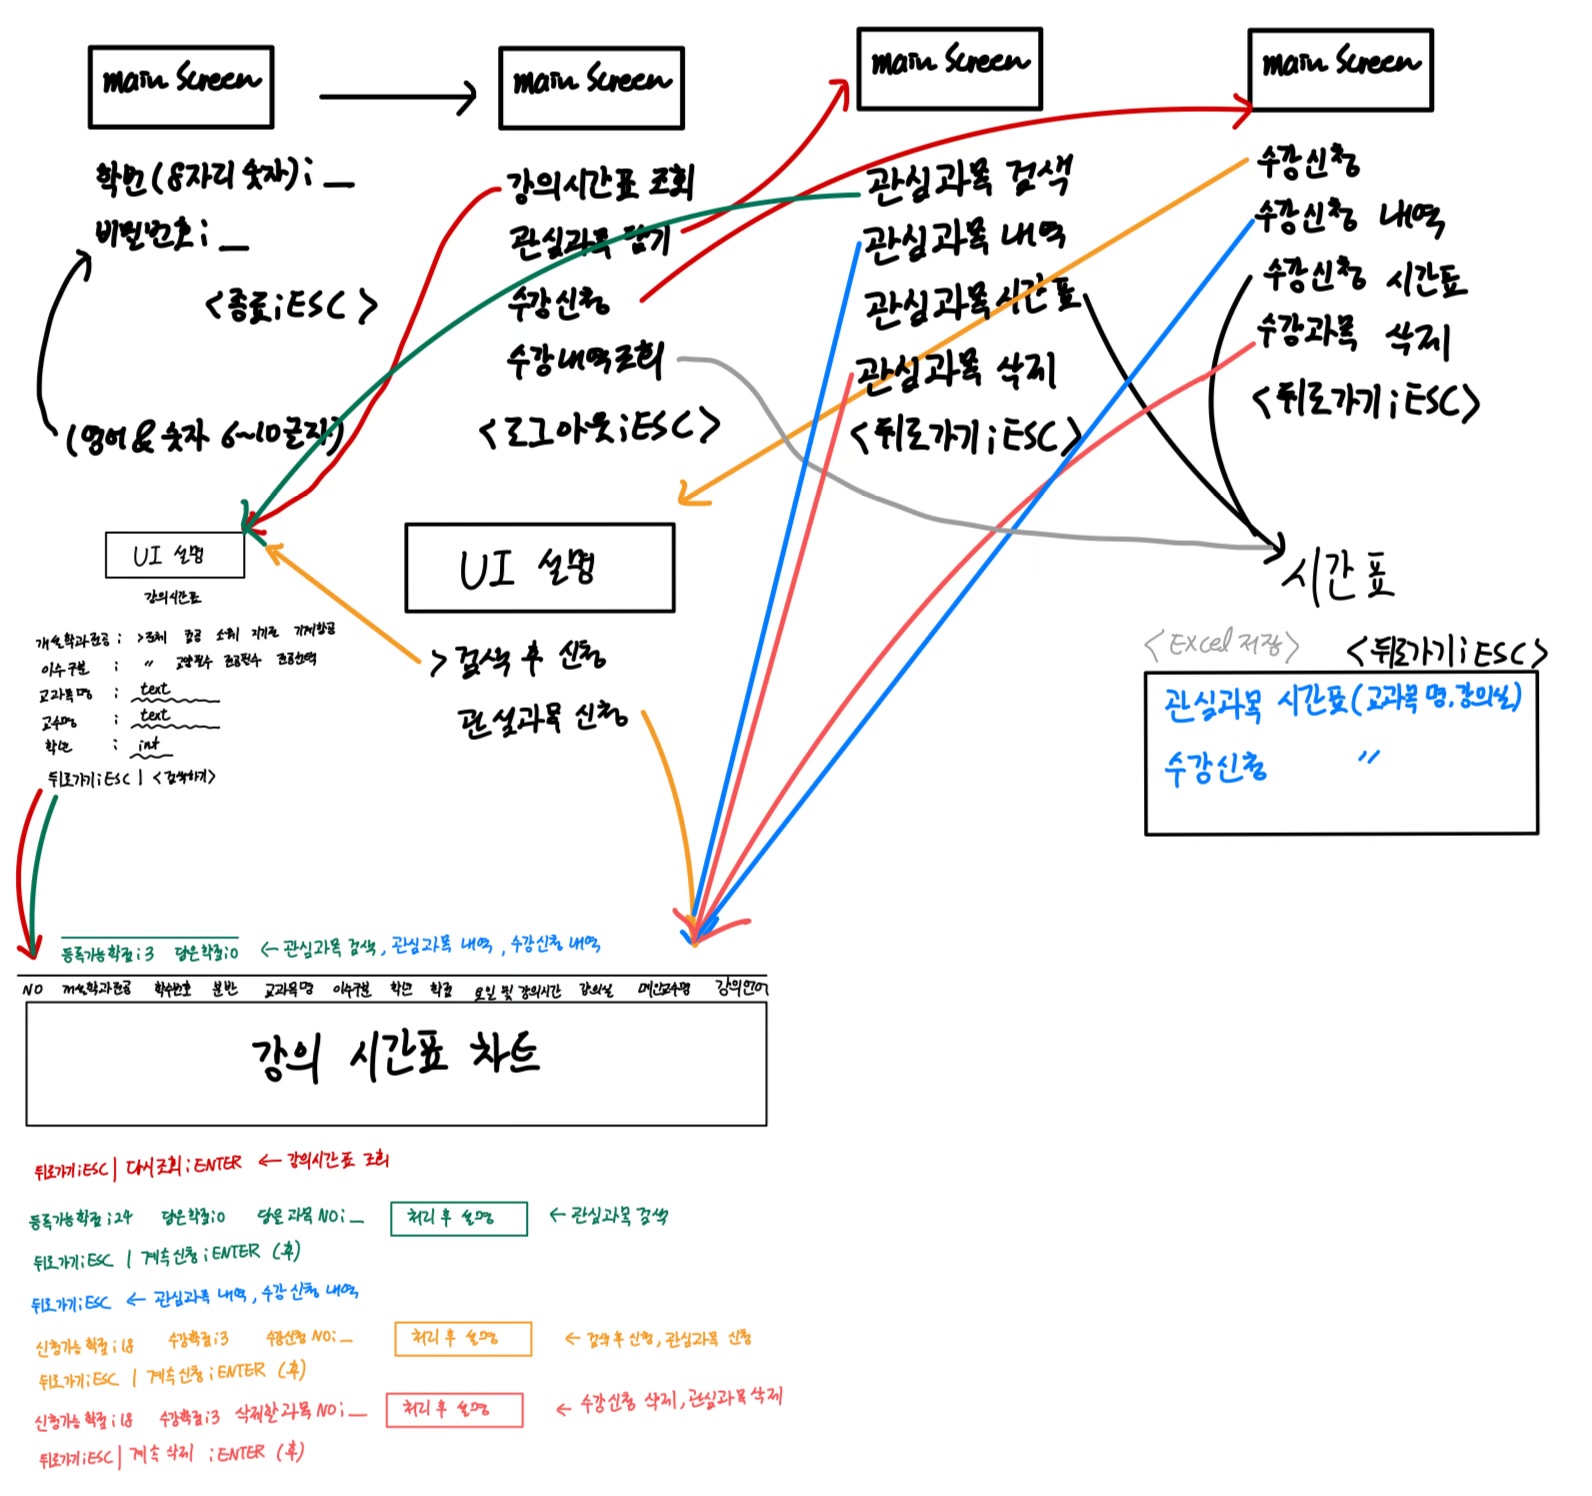 main Screen
학번(8자리 숫자) : _
비밀번호 : _
<종료 : ESC>
(영어 & 숫자 6~10글자)
main Screen
강의시간표 조회
관심과목 담기
수강신청
수강내역조회
<로그아웃 : ESC>
main Screen
관심과목 검색
관심과목 내역
관심과목 시간표
관심과목 삭제
<뒤로가기 : ESC>
main Screen
수강신청
수강신청 내역
수강신청 시간표
수강과목 삭제
<뒤로가기 : ESC>
UI 설명
강의시간표
개설학과전공 : >전체
이수구분 : 〃 교양필수 전공필수 전공선택
교과목명 : text
교수명 : text
학년 : int
뒤로가기 : ESC | <검색하기>
UI 설명
> 검색 후 신청
관심과목 신청
시간표
<Excel 저장> <뒤로가기 : ESC>
관심과목 시간표(교과목명, 강의실)
수강신청 〃
등록가능학점 : 3 담은학점 : 0 ← 관심과목 검색, 관심과목 내역, 수강신청 내역
NO 개설학과전공 학수번호 분반 교과목명 이수구분 학년 학점 요일 및 강의시간 강의실 메인교수명 강의언어
강의 시간표 차트
뒤로가기 : ESC | 다시조회 : ENTER ← 강의시간표 조회
등록가능학점 : 24 담은학점 : 0 담을 과목 NO : _ 처리 후 설명 ← 관심과목 검색
뒤로가기 : ESC | 계속 신청 : ENTER (후)
뒤로가기 : ESC ← 관심과목 내역, 수강 신청 내역
신청가능 학점 : 18 수강학점 : 3 수강신청 NO : _ 처리 후 설명 ← 검색 후 신청, 관심과목 신청
뒤로가기 : ESC | 계속 신청 : ENTER (후)
신청가능 학점 : 18 수강학점 : 3 삭제할 과목 NO : _ 처리 후 설명 ← 수강신청 삭제, 관심과목 삭제
뒤로가기 : ESC | 계속 삭제 : ENTER (후)